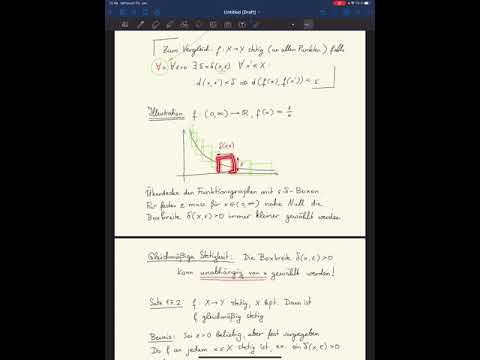 Untitled (Draft)
Zum Vergleich: f: X→Y stetig (an allen Punkten) falls
∀x ∀ε>0 ∃δ=δ(x,ε) ∀x'∈X:
d(x,x')<δ ⇒ d(f(x),f(x'))<ε
Illustration f: (0,∞)→ℝ, f(x)=1/x
δ(ε,x)
ε
Überdecken den Funktionsgraphen mit ε δ-Boxen.
Für festen ε muss für x∈(0,∞) nahe Null die
Boxbreite δ(x,ε)>0 immer kleiner gewählt werden
Gleichmäßige Stetigkeit: Die Boxbreite δ(x,ε)>0
kann unabhängig von x gewählt werden!
Satz 17.2 f: X→Y stetig, X kpt. Dann ist
f gleichmäßig stetig
Beweis: Sei ε>0 beliebig, aber fest vorgegeben
Da f an jedem x∈X stetig ist, ex. ein δ(x,ε)>0